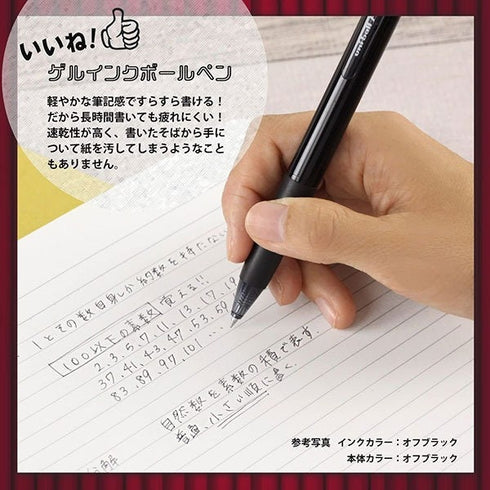 いいね!
ゲルインクボールペン
軽やかな筆記感ですらすら書ける！
だから長時間書いても疲れにくい！
速乾性が高く、書いたそばから手に
ついて紙を汚してしまうようなこと
もありません。
uni-ball
1とその数自身しか約数を持たない
100以下の素数 覚える!!
2.3.5.7.11.13.17.19
37.41.43.47.53.59
83.89.97.101…
自然数を素数の積で表す
普通、小さい順に書く。
参考写真 インクカラー：オフブラック
本体カラー：オフブラック